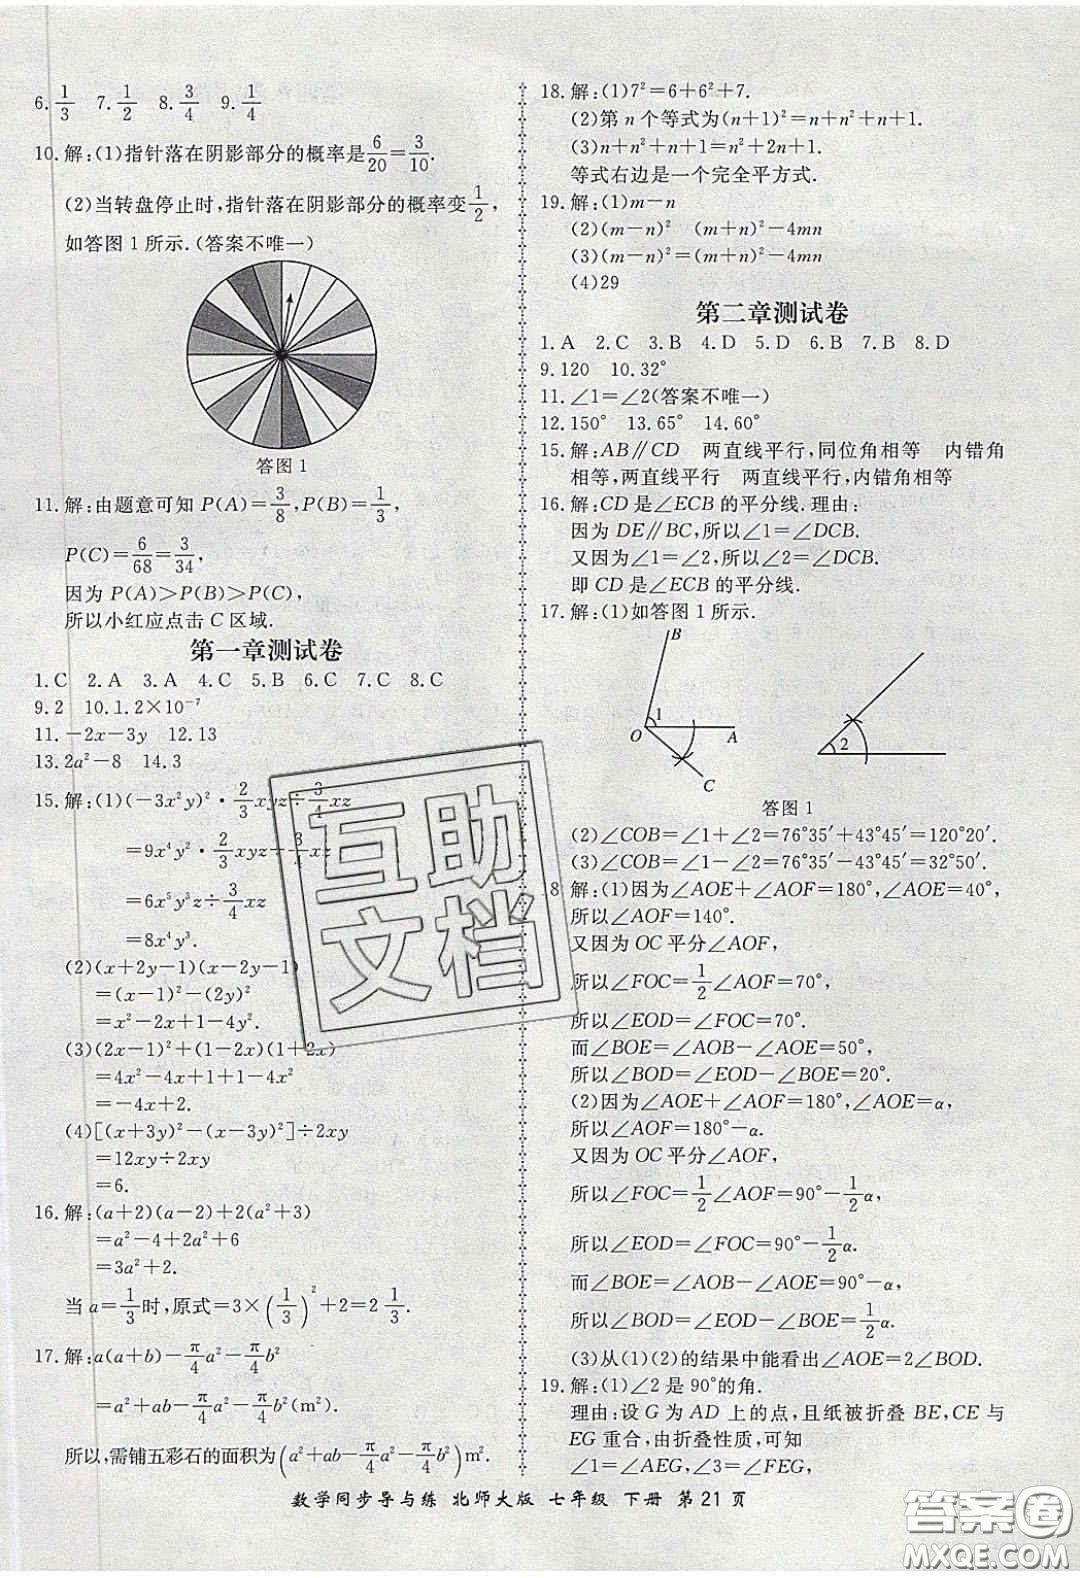 6. 1/3 7. 1/2 8. 3/4 9. 1/4
10. 解:(1)指针落在阴影部分的概率是6/20=3/10.
(2)当转盘停止时,指针落在阴影部分的概率变1/2,
如答图1所示.(答案不唯一)
答图1
11. 解:由题意可知P(A)=3/8,P(B)=1/3,
P(C)=6/68=3/34,
因为P(A)>P(B)>P(C),
所以小红应点击C区域.
第一章测试卷
1.C 2.A 3.A 4.C 5.B 6.C 7.C 8.C
9.2 10.1.2×10⁻⁷
11.-2x-3y 12.13
13.2a²-8 14.3
15. 解:(1)(-3x²y)²·2/3xyz÷3/4xz
=9x⁴y²·2/3xyz÷3/4xz
=6x⁵y³z÷3/4xz
=8x⁴y³.
(2)(x+2y-1)(x-2y-1)
=(x-1)²-(2y)²
=x²-2x+1-4y².
(3)(2x-1)²+(1-2x)(1+2x)
=4x²-4x+1+1-4x²
=-4x+2.
(4)[(x+3y)²-(x-3y)²]÷2xy
=12xy÷2xy
=6.
16. 解:(a+2)(a-2)+2(a²+3)
=a²-4+2a²+6
=3a²+2.
当a=1/3时,原式=3×(1/3)²+2=2 1/3.
17. 解:a(a+b)-π/4a²-π/4b²
=a²+ab-π/4a²-π/4b²(m²).
所以,需铺五彩石的面积为(a²+ab-π/4a²-π/4b²)m².
18. 解:(1)7²=6+6²+7.
(2)第n个等式为(n+1)²=n+n²+n+1.
(3)n+n²+n+1=n²+2n+1=(n+1)².
等式右边是一个完全平方式.
19. 解:(1)m-n
(2)(m-n)² (m+n)²-4mn
(3)(m-n)²=(m+n)²-4mn
(4)29
第二章测试卷
1.A 2.C 3.B 4.D 5.D 6.B 7.B 8.D
9.120 10.32°
11.∠1=∠2(答案不唯一)
12.150° 13.65° 14.60°
15. 解:AB∥CD 两直线平行,同位角相等 内错角
相等,两直线平行 两直线平行,内错角相等
16. 解:CD是∠ECB的平分线.理由:
因为DE∥BC,所以∠1=∠DCB.
又因为∠1=∠2,所以∠2=∠DCB.
即CD是∠ECB的平分线.
17. 解:(1)如答图1所示.
B
1
O
A
C
2
答图1
(2)∠COB=∠1+∠2=76°35′+43°45′=120°20′.
(3)∠COB=∠1-∠2=76°35′-43°45′=32°50′.
18. 解:(1)因为∠AOE+∠AOF=180°,∠AOE=40°,
所以∠AOF=140°.
又因为OC平分∠AOF,
所以∠FOC=1/2∠AOF=70°,
所以∠EOD=∠FOC=70°.
而∠BOE=∠AOB-∠AOE=50°,
所以∠BOD=∠EOD-∠BOE=20°.
(2)因为∠AOE+∠AOF=180°,∠AOE=α,
所以∠AOF=180°-α.
又因为OC平分∠AOF,
所以∠FOC=1/2∠AOF=90°-1/2α,
所以∠EOD=∠FOC=90°-1/2α.
而∠BOE=∠AOB-∠AOE=90°-α,
所以∠BOD=∠EOD-∠BOE=1/2α.
(3)从(1)(2)的结果中能看出∠AOE=2∠BOD.
19. 解:(1)∠2是90°的角.
理由:设G为AD上的点,且纸被折叠BE,CE与
EG重合,由折叠性质,可知
∠1=∠AEG,∠3=∠GED.
数学同步导与练 北师大版 七年级 下册 第21页
互助
文档
答案圈
MXQE.COM